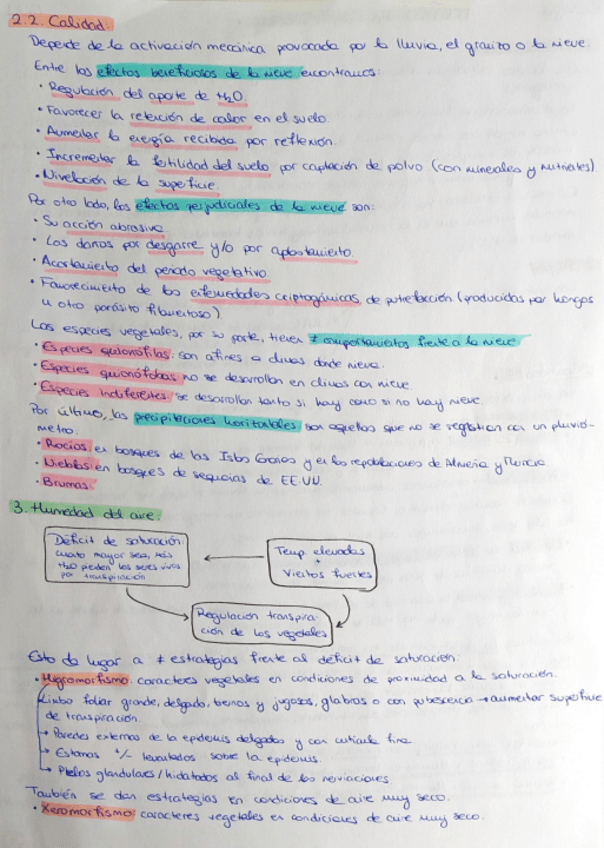 2.2. Calidad:
Depende de la activación mecánica provocada por la lluvia, el granizo o la nieve.
Entre los efectos beneficiosos de la nieve encontramos:
• Regulación del aporte de H2O.
• Favorecer la retención de calor en el suelo.
• Aumentar la energía recibida por reflexión.
• Incrementar la fertilidad del suelo por captación de polvo (con minerales y nutrientes).
• Nivelación de la superficie.
Por otro lado, los efectos perjudiciales de la nieve son:
• Su acción abrasiva.
• Los daños por desgarre y/o por aplastamiento.
• Acortamiento del periodo vegetativo.
• Favorecimiento de las enfermedades criptogámicas, de putrefacción (producidas por hongos
u otro parásito filamentoso).
Las especies vegetales, por su parte, tienen ≠ comportamientos frente a la nieve
• Especies quionófilas: son afines a climas donde nieva.
• Especies quionófobas: no se desarrollan en climas con nieve.
• Especies indiferentes: se desarrollan tanto si hay como si no hay nieve.
Por último, las precipitaciones horizontales son aquellas que no se registran con un pluvió-
metro.
• Rocíos: en bosques de las Islas Canarias y en las repoblaciones de Almería y Murcia.
• Nieblas: en bosques de sequoias de EE.UU.
• Brumas:
3. Humedad del aire:
Déficit de saturación:
cuanto mayor sea, más
H2O pierden los seres vivos
por transpiración
Temp. elevadas
+
Vientos fuertes
Regulación transpira-
ción de los vegetales
Esto da lugar a ≠ estrategias frente al déficit de saturación:
• Higromorfismo: caracteres vegetales en condiciones de proximidad a la saturación.
Limbo foliar grande, delgado, tiernos y jugosos, glabros o con pubescencia → aumentar superficie
de transpiración.
→ Paredes externas de la epidermis delgadas y con cutícula fina
→ Estomas +/- levantados sobre la epidermis.
→ Pelos glandulares/hidatodos al final de las nerviaciones
También se dan estrategias en condiciones de aire muy seco.
• Xeromorfismo: caracteres vegetales en condiciones de aire muy seco.